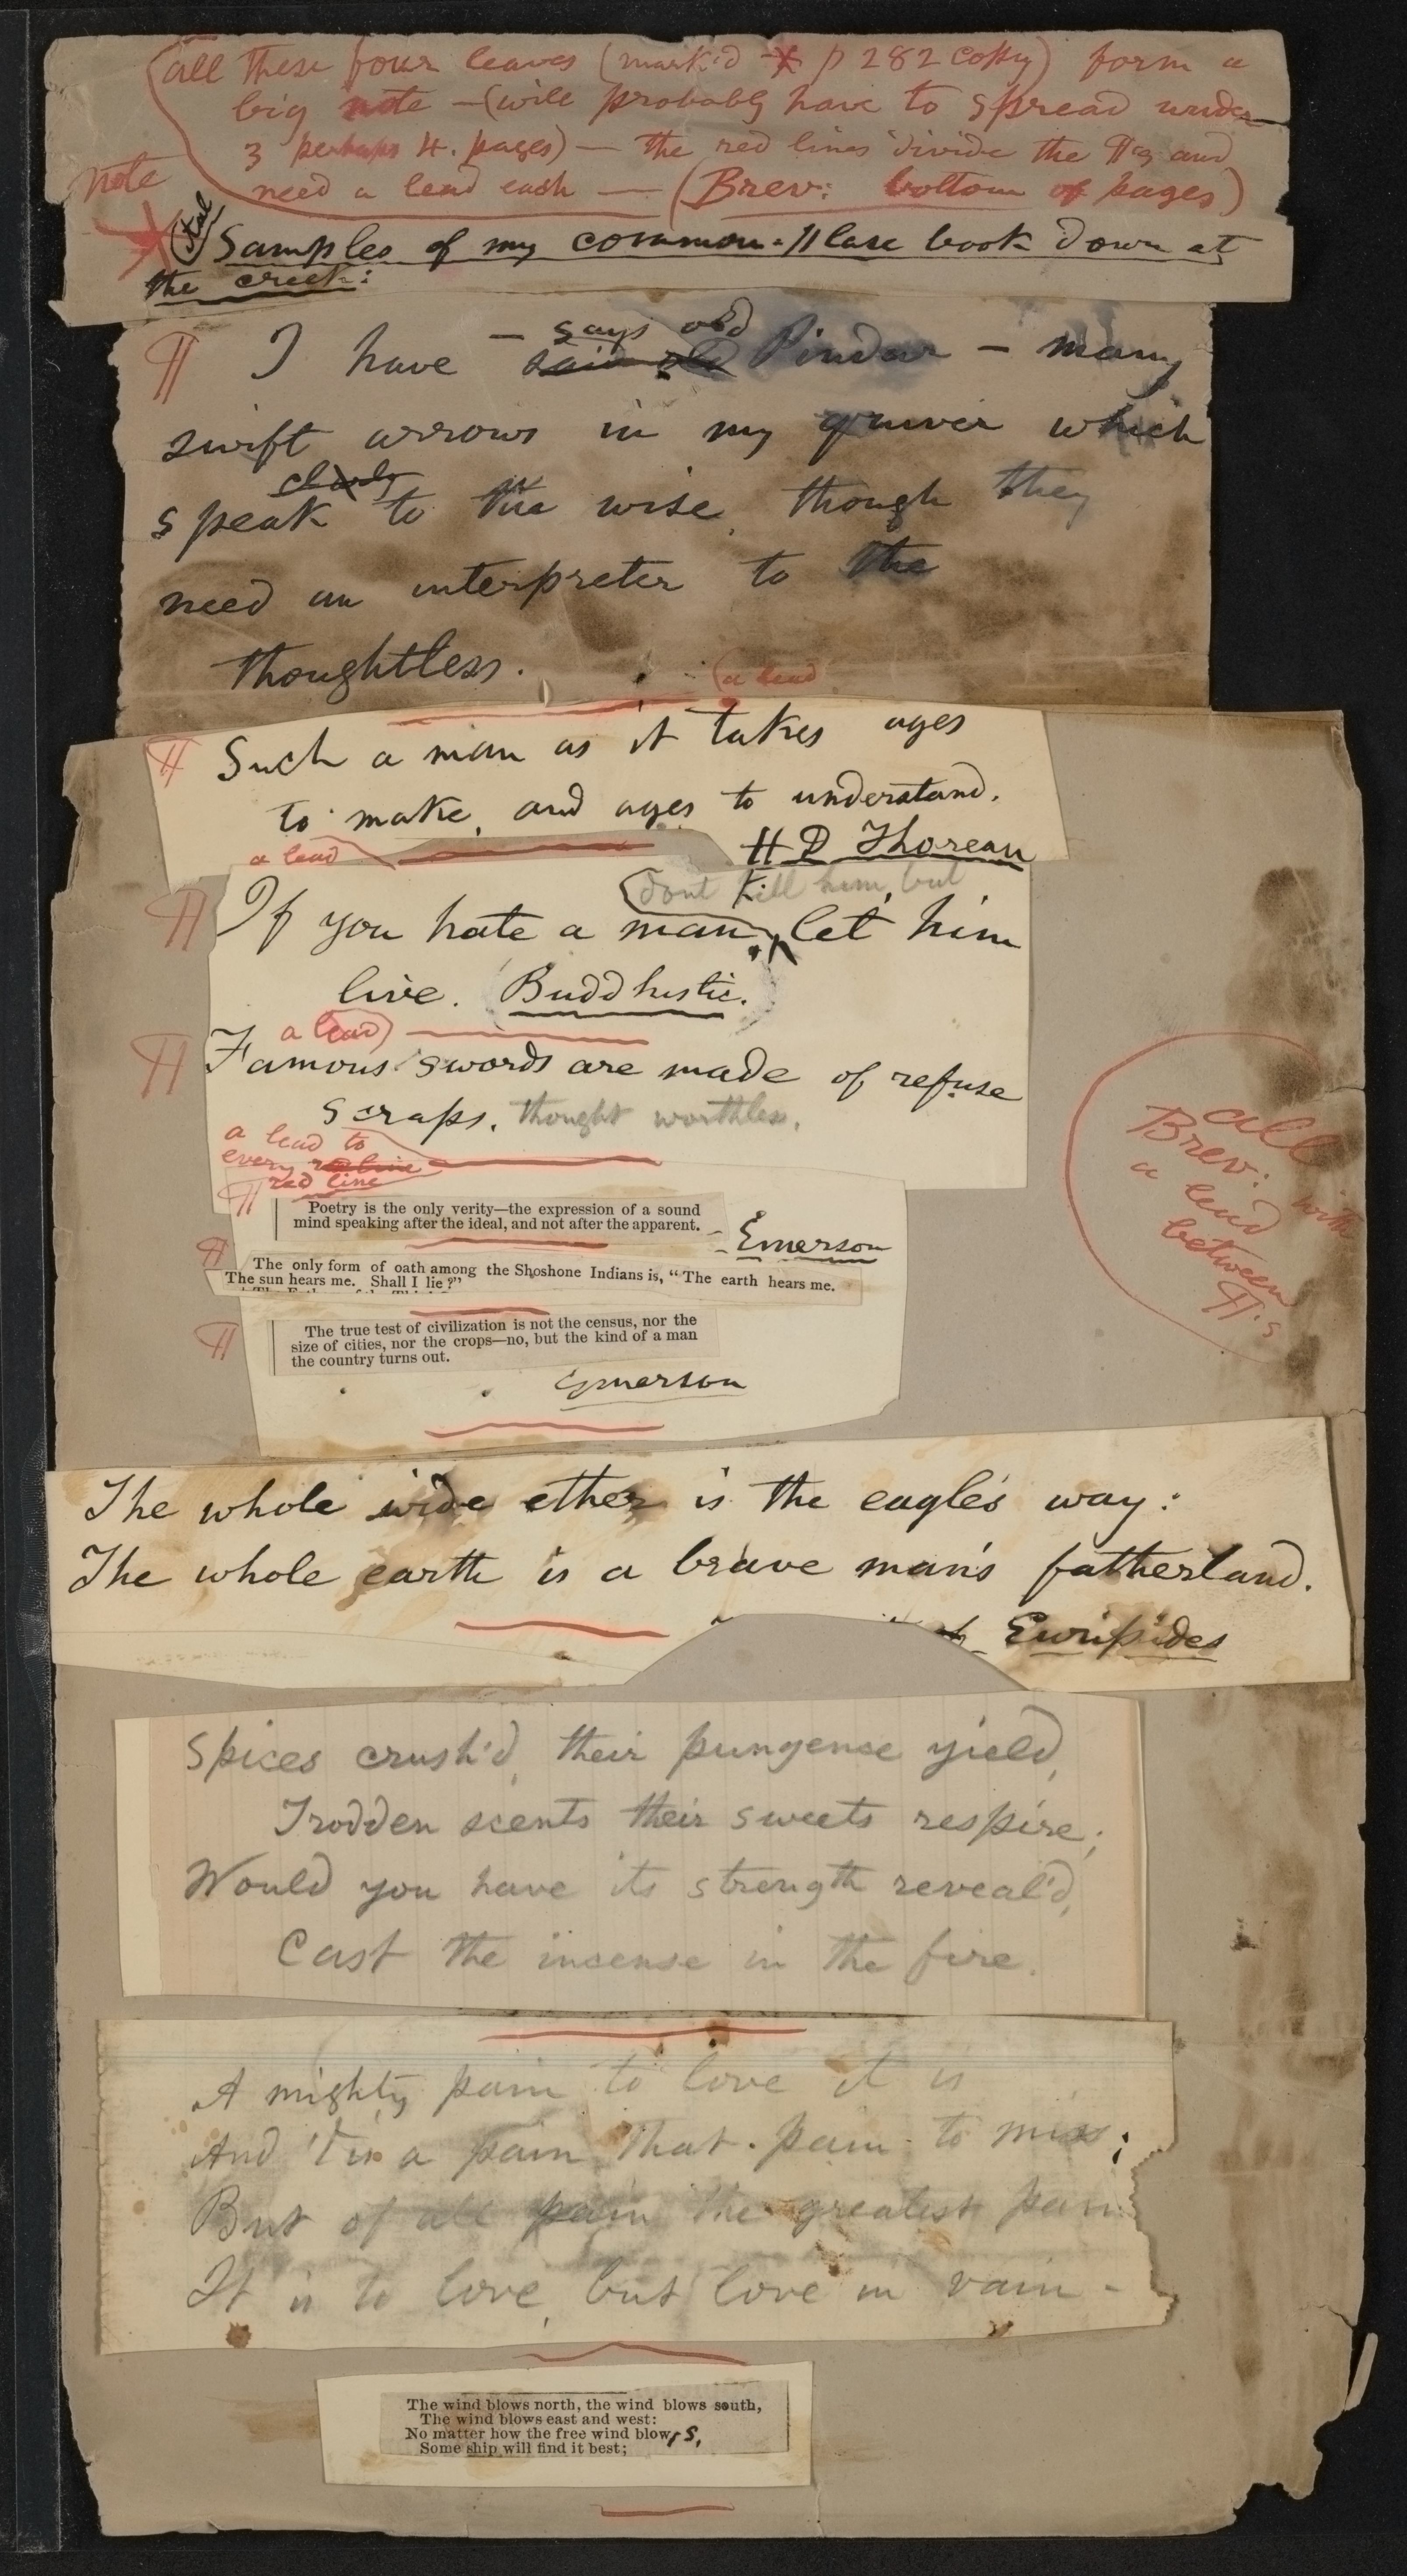 (all these four leaves (mark'd * p 282 copy) form a
big note — (will probably have to spread under
3 perhaps 4. pages) — the red lines divide the ¶s and
need a lead each — (Brev: bottom of pages)
note
* (Ital
Samples of my common-place book down at
the creek:
¶ I have — says old
said old Pindar — many
swift arrows in my quiver which
clearly
speak to the wise, though they
need an interpreter to the
thoughtless.
(a lead
¶ Such a man as it takes ages
to make, and ages to understand.
a lead
H D Thoreau
(dont kill him, but
¶ If you hate a man, ^ let him
live. Buddhistic.
a lead)
¶ Famous swords are made of refuse
scraps, thought worthless.
a lead to
every
red line
¶ Poetry is the only verity—the expression of a sound
mind speaking after the ideal, and not after the apparent.
— Emerson
¶ The only form of oath among the Shoshone Indians is, “The earth hears me.
The sun hears me. Shall I lie?”
¶ The true test of civilization is not the census, nor the
size of cities, nor the crops—no, but the kind of a man
the country turns out.
Emerson
all
Brev: with
a lead
between
¶.s
The whole wide ether is the eagle's way:
The whole earth is a brave man's fatherland.
Euripides
Spices crush'd, their pungence yield,
Trodden scents their sweets respire;
Would you have its strength reveal'd,
Cast the incense in the fire.
A mighty pain to love it is
And 'tis a pain that pain to miss;
But of all pain the greatest pain
It is to love, but love in vain —
The wind blows north, the wind blows south,
The wind blows east and west:
No matter how the free wind blows,
Some ship will find it best;